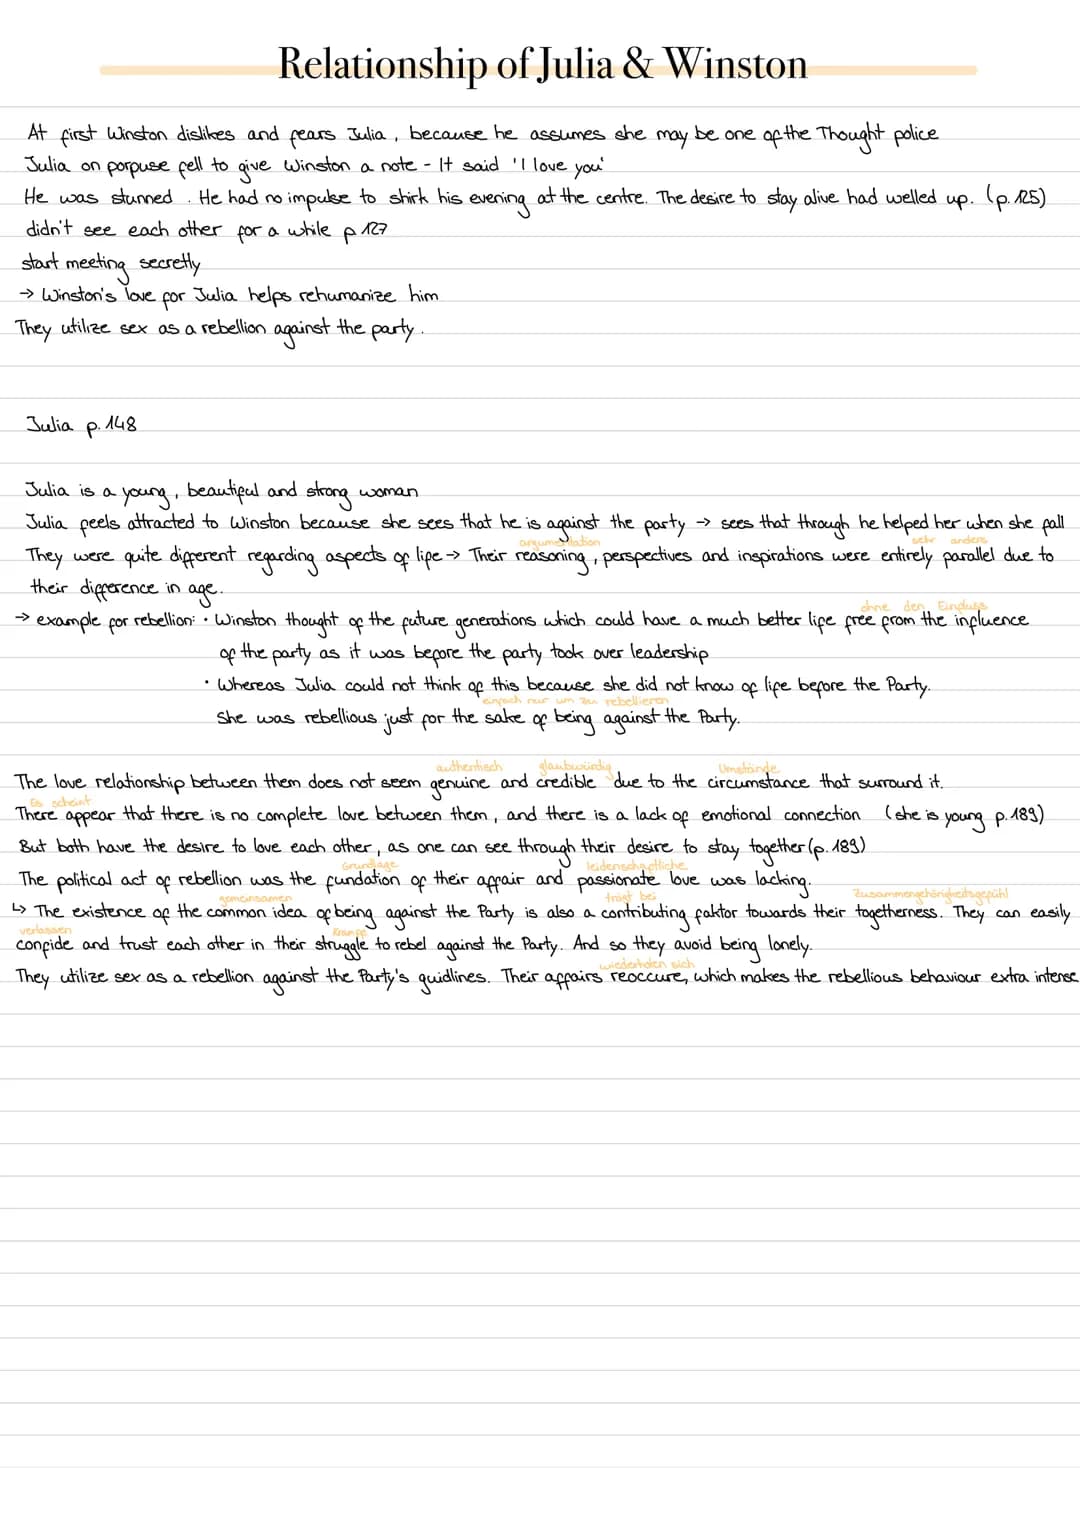 Relationship of Julia & Winston
At first Winston dislikes and fears Julia, because he assumes she may be one of the Thought police
Julia on porpuse fell to give Winston a note - It said 'I love you'
He was stunned. He had no impulse to shirk his evening at the centre. The desire to stay alive had welled up. (p. 125)
didn't see each other for a while p 127
start meeting secretly
→ Winston's love for Julia helps rehumanize him
They utilize sex as a rebellion against the party.
Julia p. 148
Julia is a young, beautiful and strong woman
Julia feels attracted to Winston because she sees that he is against the party → sees that through he helped her when she fall
argumentation sehr anders
They were quite different regarding aspects of life → Their reasoning, perspectives and inspirations were entirely parallel due to
their difference in age.
ohne den Einfluss
→ example for rebellion: • Winston thought of the future generations which could have a much better life free from the influence
of the party as it was before the party took over leadership
• Whereas Julia could not think of this because she did not know of life before the Party.
einfach nur um zu rebellieren
She was rebellious just for the sake of being against the Party.
authentisch glaubwürdig Umstände
The love relationship between them does not seem genuine and credible due to the circumstance that surround it.
Es scheint
There appear that there is no complete love between them, and there is a lack of emotional connection (she is young p. 189)
But both have the desire to love each other, as one can see through their desire to stay together (p. 189)
Grundlage leidenschaftliche
The political act of rebellion was the fundation of their affair and passionate love was lacking.
gemeinsamen trägt bei Zusammengehörigkeitsgefühl
↳ The existence of the common idea of being against the Party is also a contributing faktor towards their togetherness. They can easily
verlassen Kampf
confide and trust each other in their struggle to rebel against the Party. And so they avoid being lonely.
wiederholen sich
They utilize sex as a rebellion against the Party's guidlines. Their affairs reoccure, which makes the rebellious behaviour extra intense